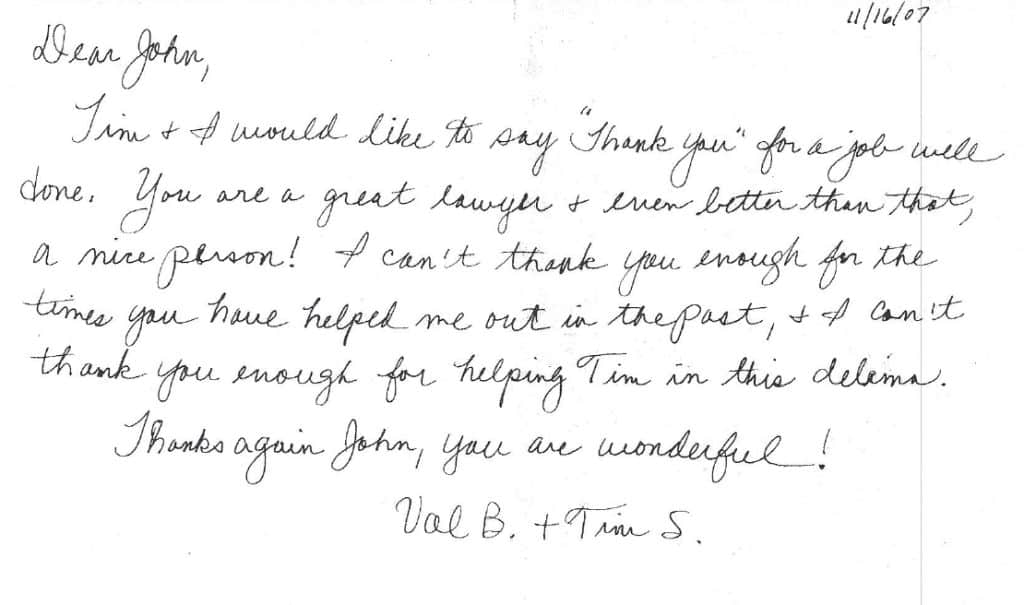 11/16/07
Dear John,
Tim + I would like to say "Thank you" for a job well
done. You are a great lawyer + even better than that,
a nice person! I can't thank you enough for the
times you have helped me out in the past, + I can't
thank you enough for helping Tim in this delema.
Thanks again John, you are wonderful!
Val B. + Tim S.